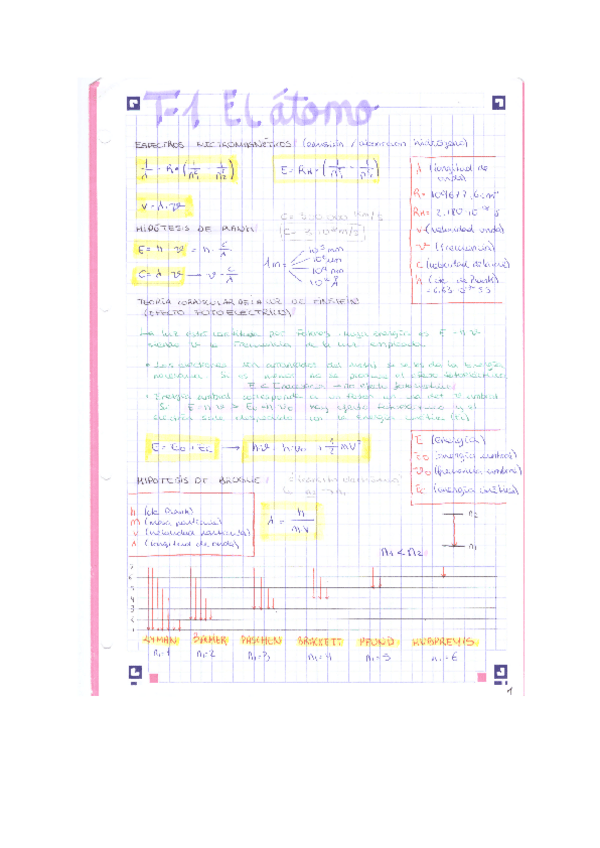 T-1 El átomo
ESPECTROS ELECTROMAGNÉTICOS (emisión / absorción hidrógeno)
1/λ = R∞ (1/n₁² - 1/n₂²)
E = RH (1/n₁² - 1/n₂²)
λ (longitud de onda)
R = 109677,6 m⁻¹
RH = 2,180 10⁻¹⁸ J
V (velocidad onda)
ν (frecuencia)
C (velocidad de la luz)
h (cte. de Planck)
V = λ · ν
HIPÓTESIS DE PLANCK
E = h · ν = h · C/λ
C = λ · ν → ν = C/λ
C = 300.000 km/s
C = 3·10⁸ m/s
1m =
10³ mm
10⁹ nm
10¹⁰ Å
TEORÍA CORPUSCULAR DE LA LUZ DE EINSTEIN
(EFECTO FOTOELÉCTRICO)
La luz está constituida por fotones cuya energía es E = h·ν
siendo ν la frecuencia de la luz empleada
• Los electrones son arrancados del metal si se les da la energía
necesaria. Si es menor no se produce el efecto fotoeléctrico
E < E necesaria → no efecto fotoeléctrico
• Energía umbral corresponde a un fotón con una det. ν umbral
Si E = h·ν > E₀ = h·ν₀ hay efecto fotoeléctrico y el
electrón sale con energía cinética (Ec)
E = E₀ + Ec → h·ν = h·ν₀ + 1/2 mV²
E (Energía)
E₀ (energía umbral)
ν₀ (frecuencia umbral)
Ec (energía cinética)
HIPÓTESIS DE BROGLIE
h (cte Planck)
m (masa partícula)
v (velocidad partícula)
λ (longitud de onda)
λ = h / m v
n₂
n₁
n₁ < n₂
7
6
5
4
3
2
1
LYMAN BALMER PASCHEN BRACKETT PFUND HUMPREYIS
n₁=1 n₁=2 n₁=3 n₁=4 n₁=5 n₁=6
1